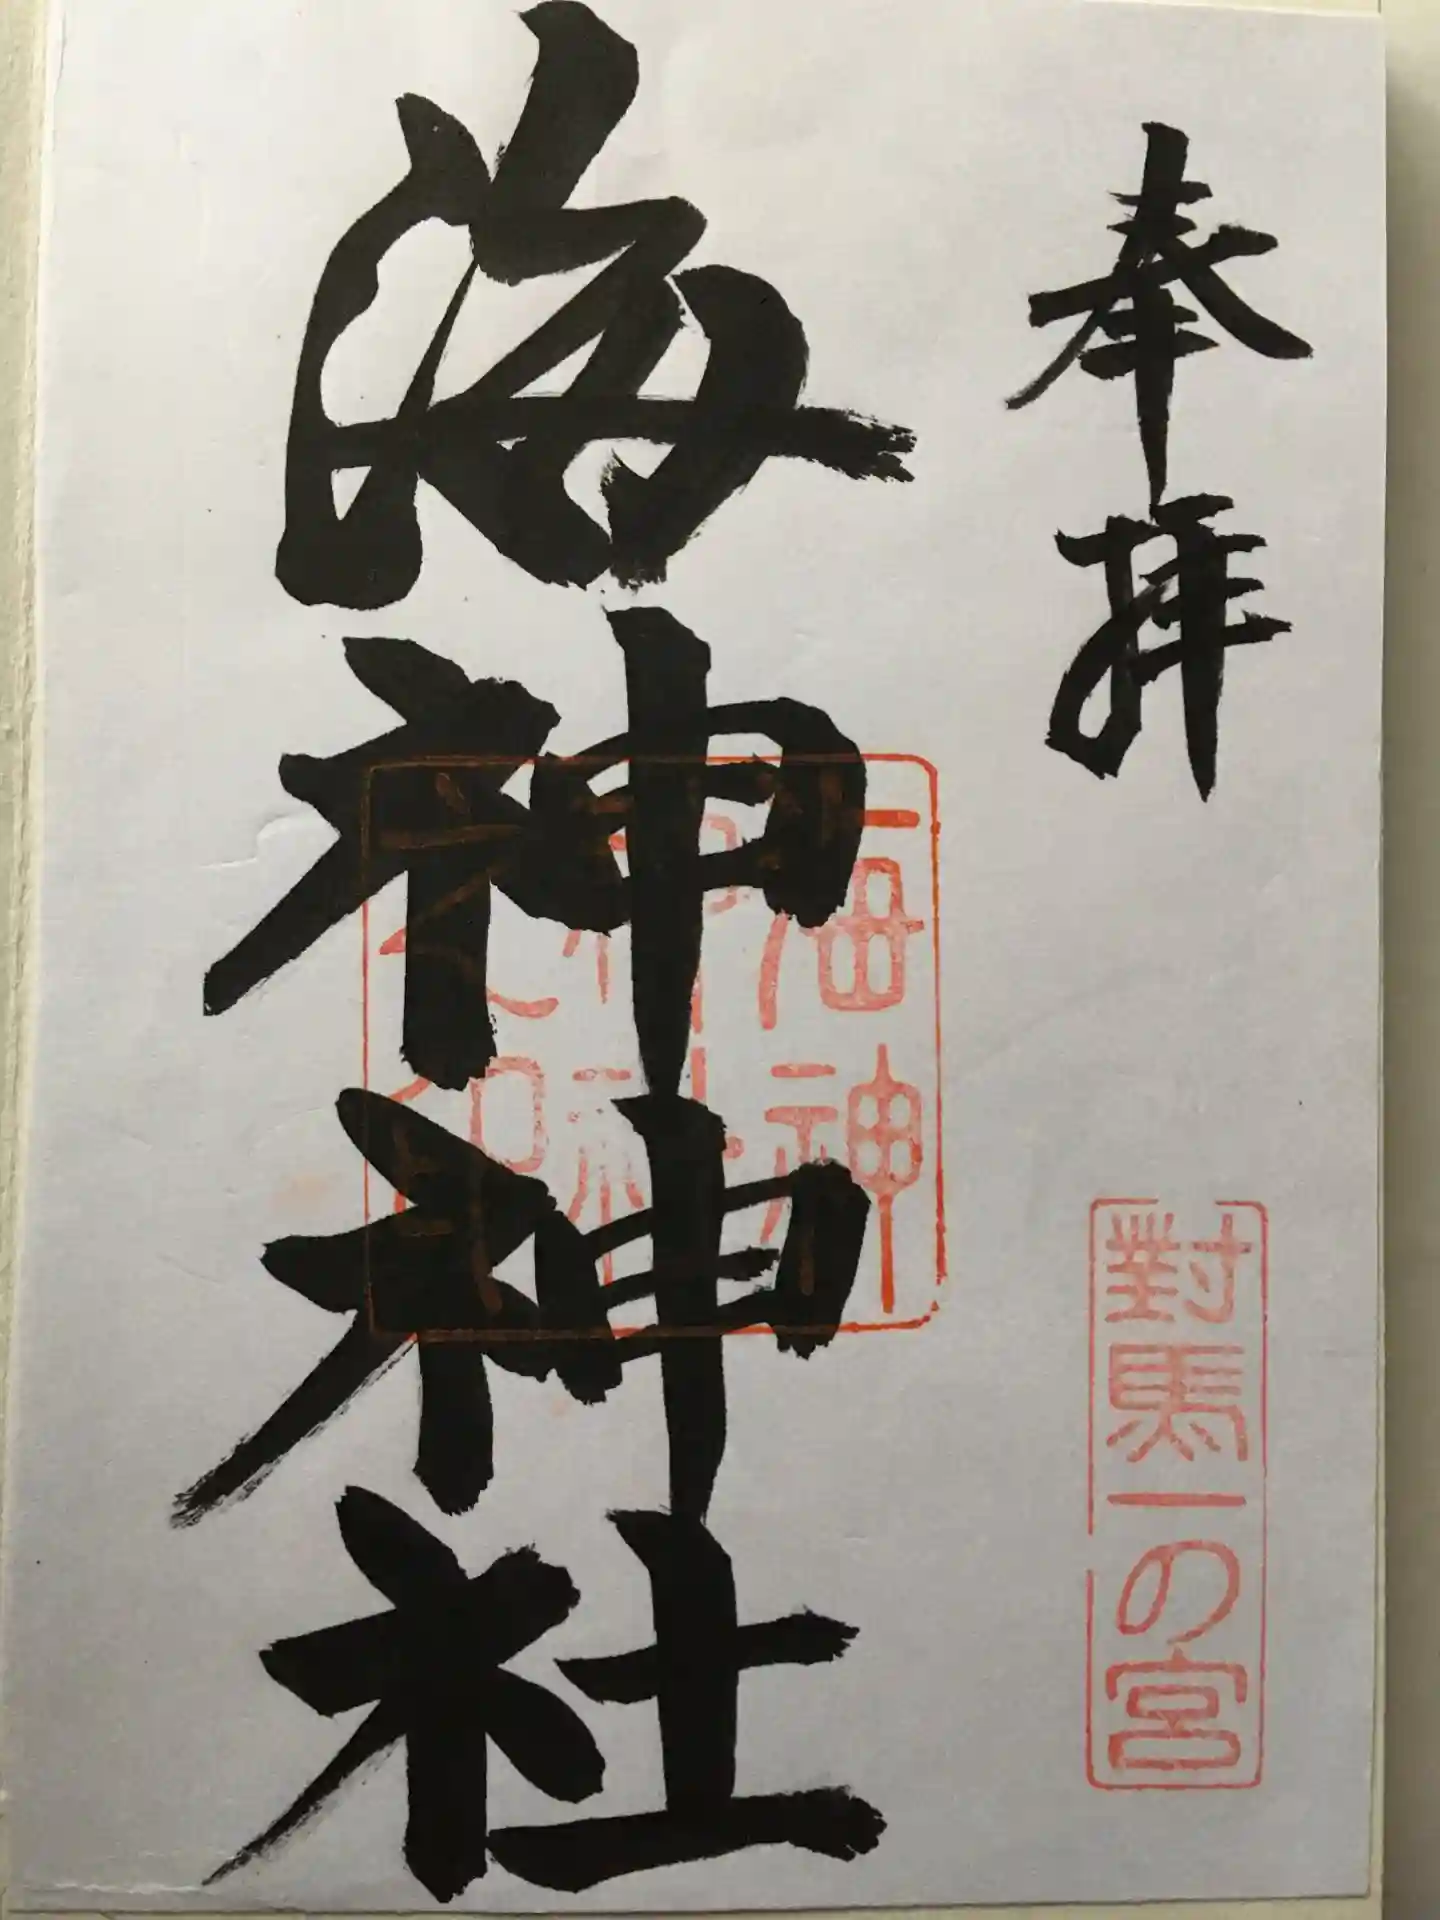 奉拝
對馬一の宮
海神神社
海神
神社
之印